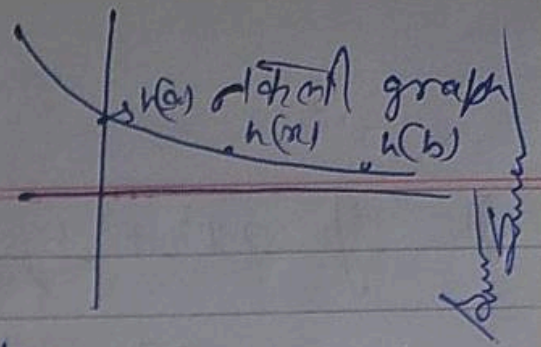 h(a) नकली graph
h(x) h(b)